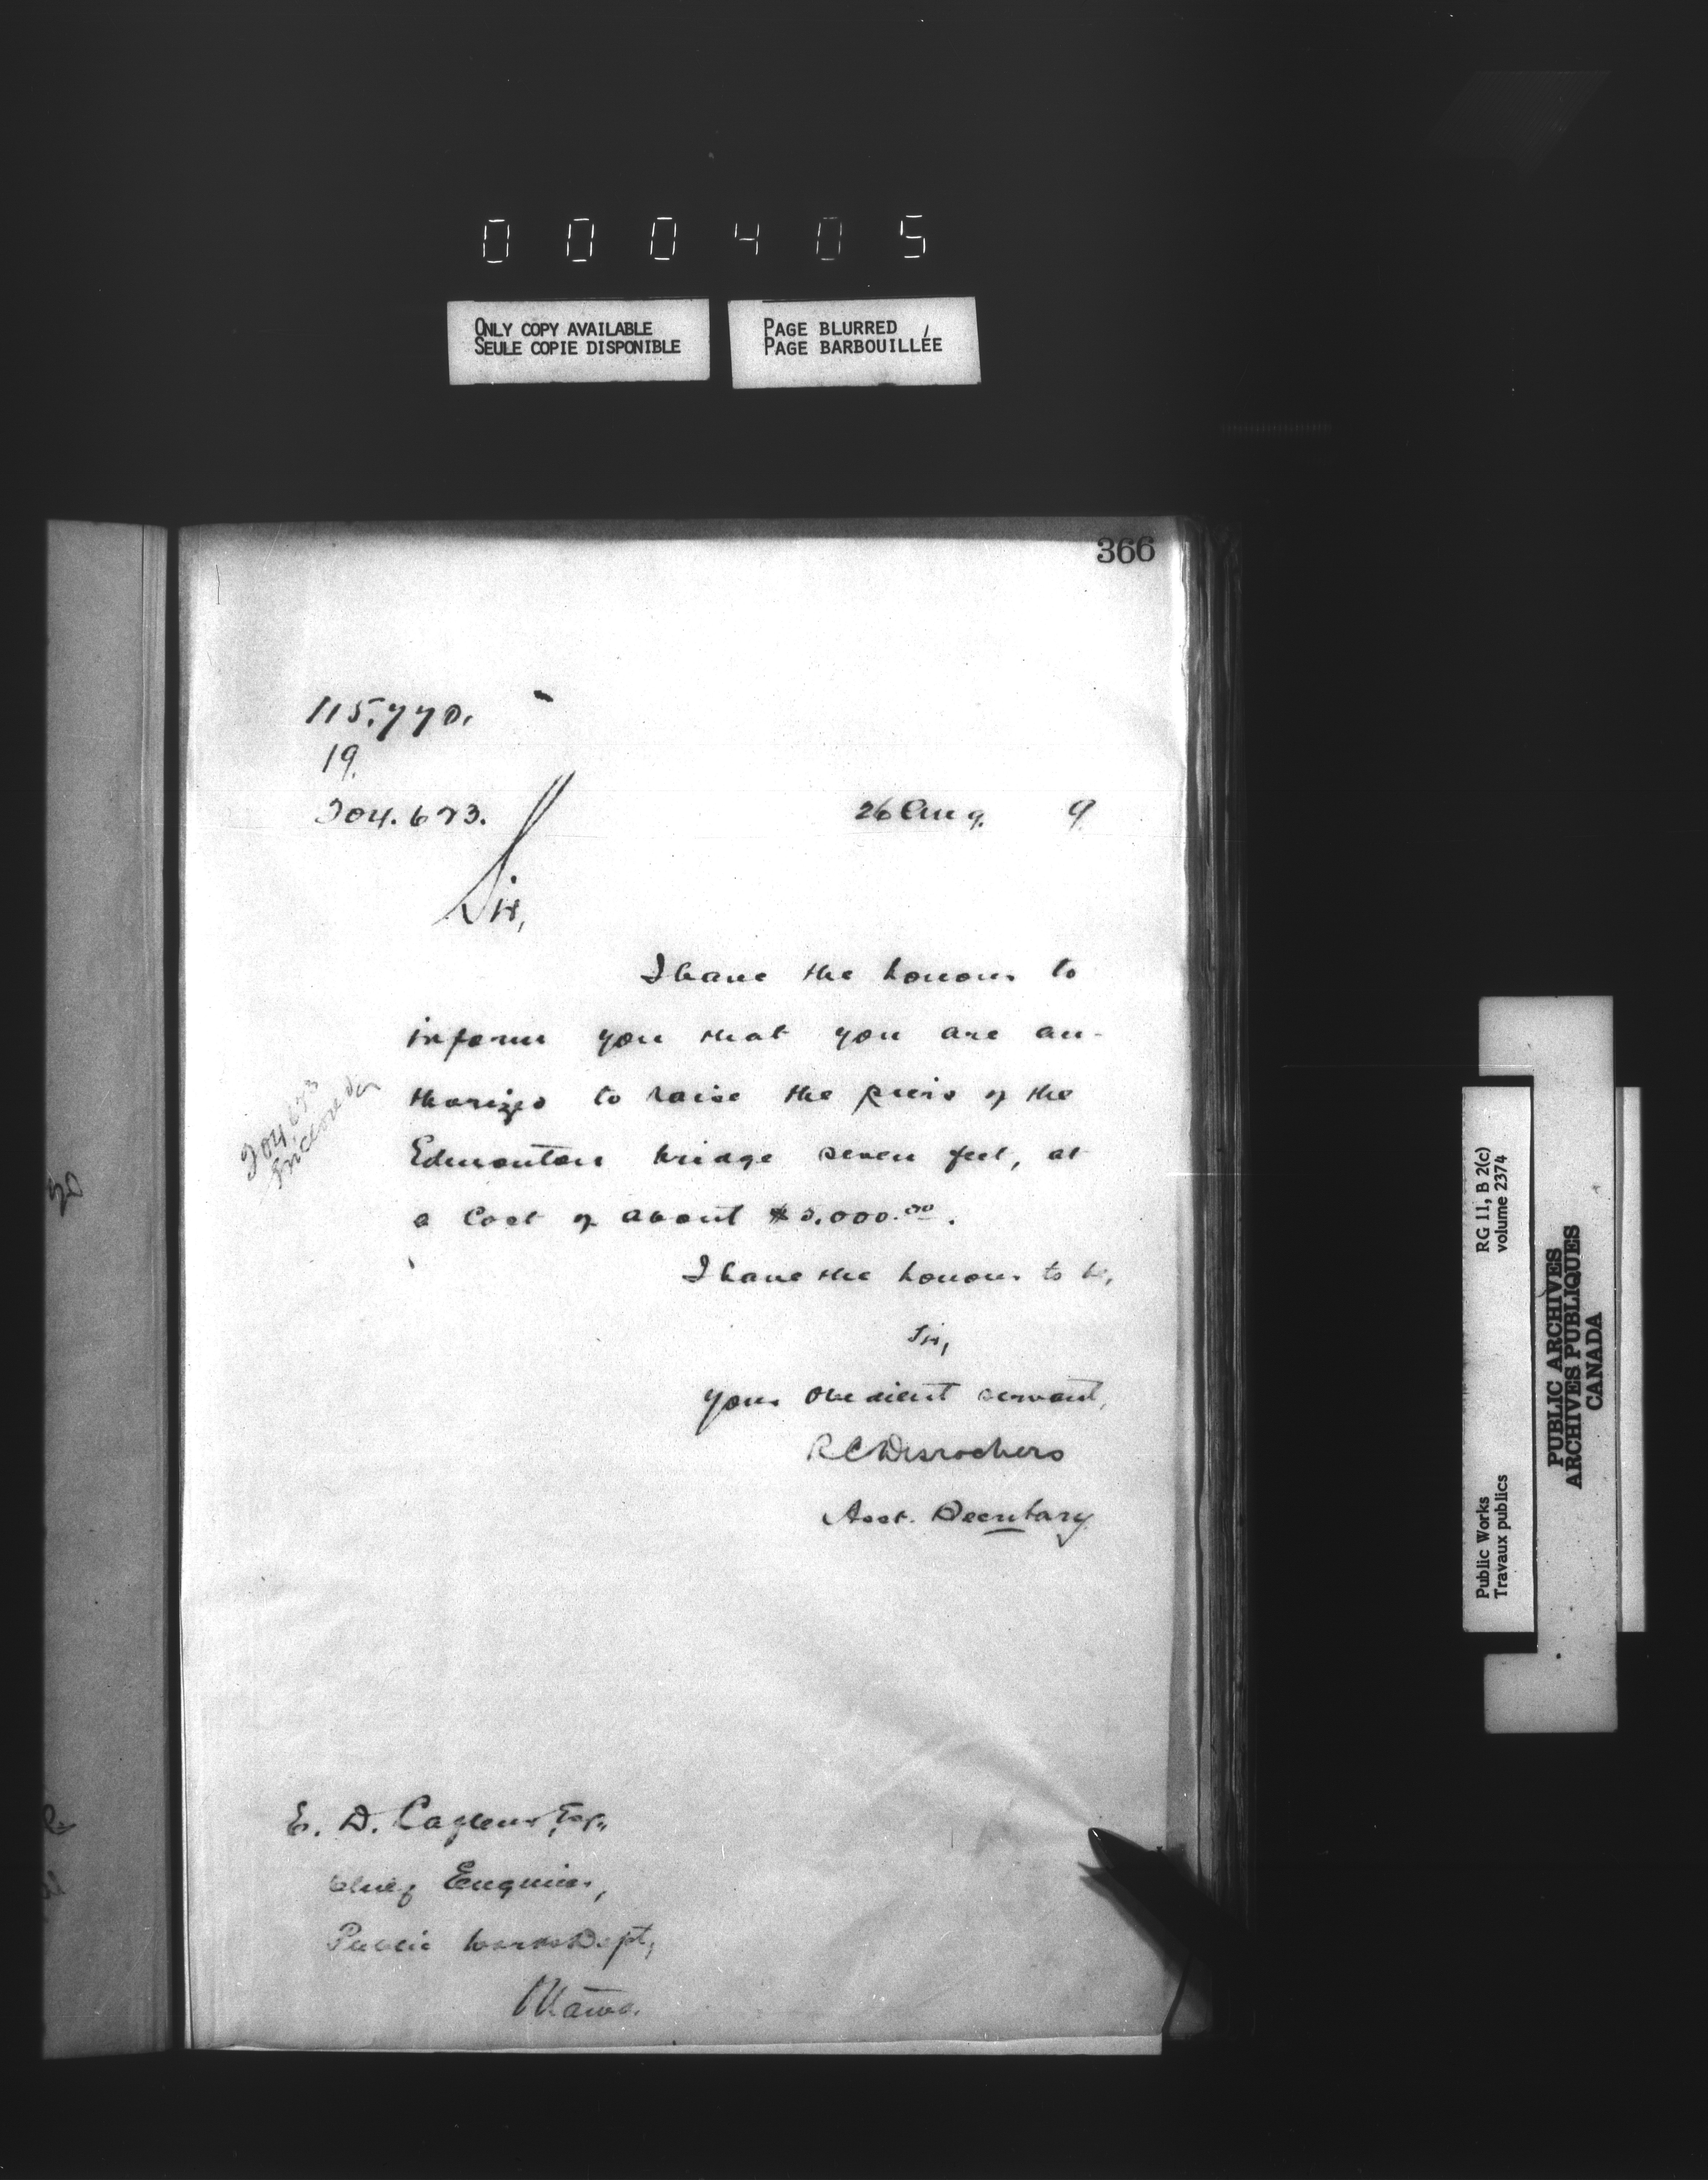 000405
ONLY COPY AVAILABLE
SEULE COPIE DISPONIBLE
PAGE BLURRED
PAGE BARBOUILLÉE
366
115.770.
19.
204.673.
26 Aug. 9
Sir,
I have the honour to
inform you that you are au-
thorized to raise the piers of the
Edmonton bridge seven feet, at
a cost of about $5,000.00.
I have the honour to be,
Sir,
Your obedient servant,
RC Desrochers
Asst. Secretary
204.673
E. D. Lafleur, Esq.,
Chief Engineer,
Public Works Dept,
Ottawa.
Public Works
Travaux publics
RG 11, B 2(c)
volume 2374
PUBLIC ARCHIVES
ARCHIVES PUBLIQUES
CANADA